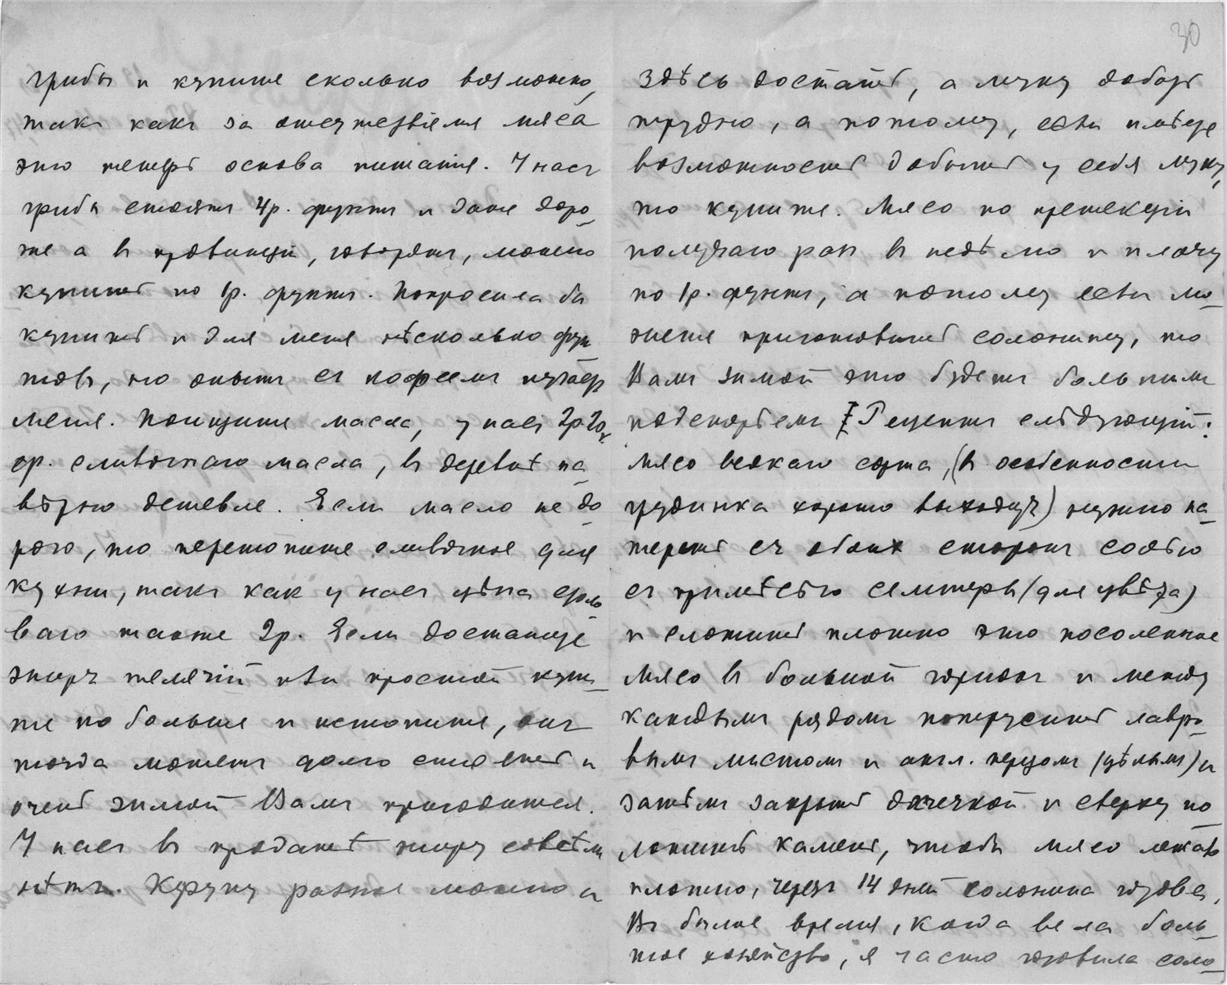 грибы и купите сколько возможно,
такъ какъ за отсутствіемъ мяса
это теперь основа питанія. У насъ
грибы стоятъ 4р. фунтъ и даже доро-
же а въ провинціи, говорятъ, можно
купить по 1р. фунтъ. Попросила бы
купить и для меня нѣсколько фун-
товъ, но опытъ съ кофеемъ пугаетъ
меня. Поищите масла, у насъ 2р 20к
фр. сливочнаго масла, въ деревнѣ на-
вѣрно дешевле. Если масло не до-
рого, то перетопите сливочное для
кухни, такъ какъ у насъ цѣна
ваго также 2р. Если достанете
жиръ телячій или простой купи-
те по больше и истопите, онъ
тогда можетъ долго стоять и
очень зимой Вамъ пригодится.
У насъ въ продажѣ жиру совсѣмъ
нѣтъ. Крупу разную можно и
30
здѣсь достать, а муку добыть
трудно, а потому, если имѣете
возможность добыть у себя муку,
то купите. Мясо по протекціи
получаю разъ въ недѣлю и плачу
по 1р. фунтъ, а потому если мо-
жете приготовить солонину, то
Вамъ зимой это будетъ большимъ
подспорьемъ Рецептъ слѣдующій:
мясо всякаго сорта, (въ особенности
грудинка хорошо выходитъ) нужно на-
тереть съ обоихъ сторонъ солью
съ примѣсью селитры (для цвѣта)
и сложить плотно это посоленное
мясо въ большой горшокъ и между
каждымъ рядомъ поперусыпать лавро-
вымъ листомъ и англ. перцомъ (цѣлымъ) и
затѣмъ закрыть дощечкой и сверху по-
ложить камень, чтобы мясо лежало
плотно, черезъ 14 дней солонина готова.
Въ былое время, когда вела боль-
шое хозяйство, я часто готовила соло-